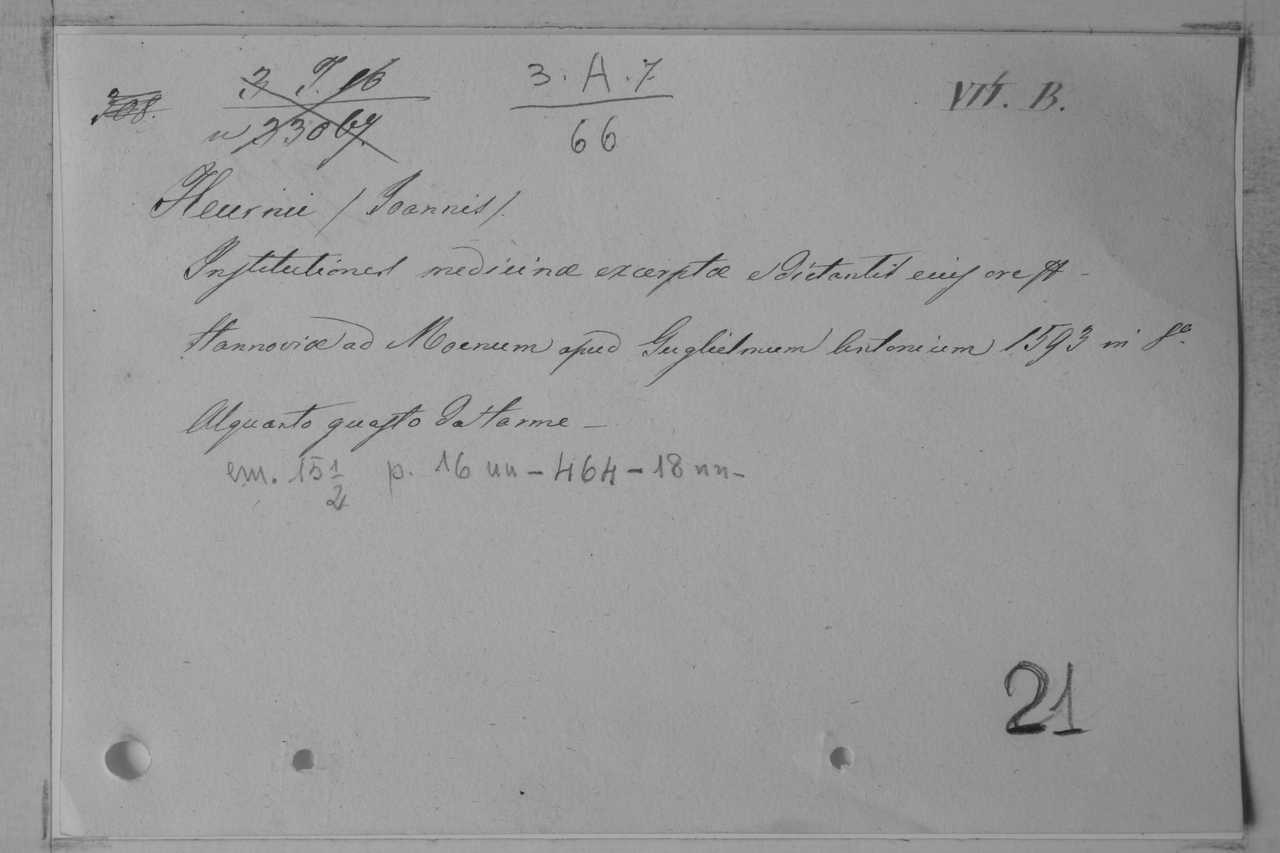 308.
3 T. 16
n 23067.
3. A. 7
66
VII. B.
Heurnii / Joannis /.
Institutiones medicinæ excerptæ e dictantis eius ore ff -
Hannoviæ ad Moenum apud Guglielmum Antonium 1593 in 8º
Alquanto guasto da tarme -
cm. 15 1/2 p. 16 nn - 464 - 18 nn -
21